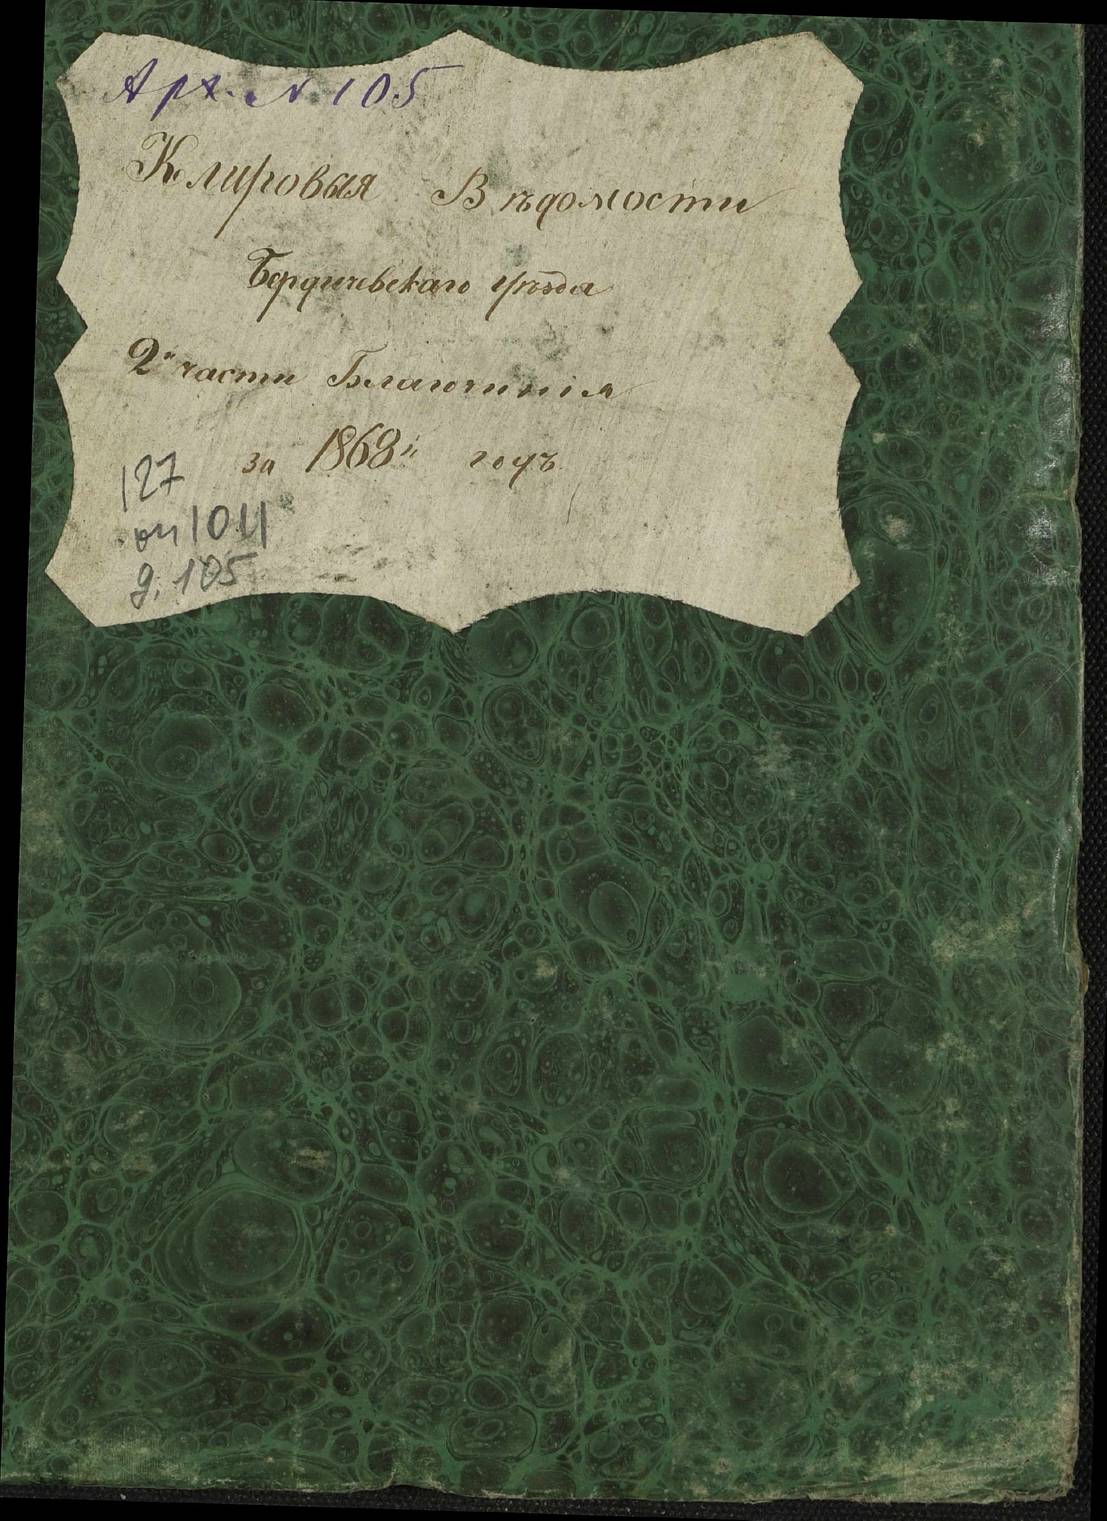 Арх. № 105
Клировыя Вѣдомости
Бердичевскаго уѣзда
2й части Благочинія
за 1868й годъ
127
оп 1011
д. 105